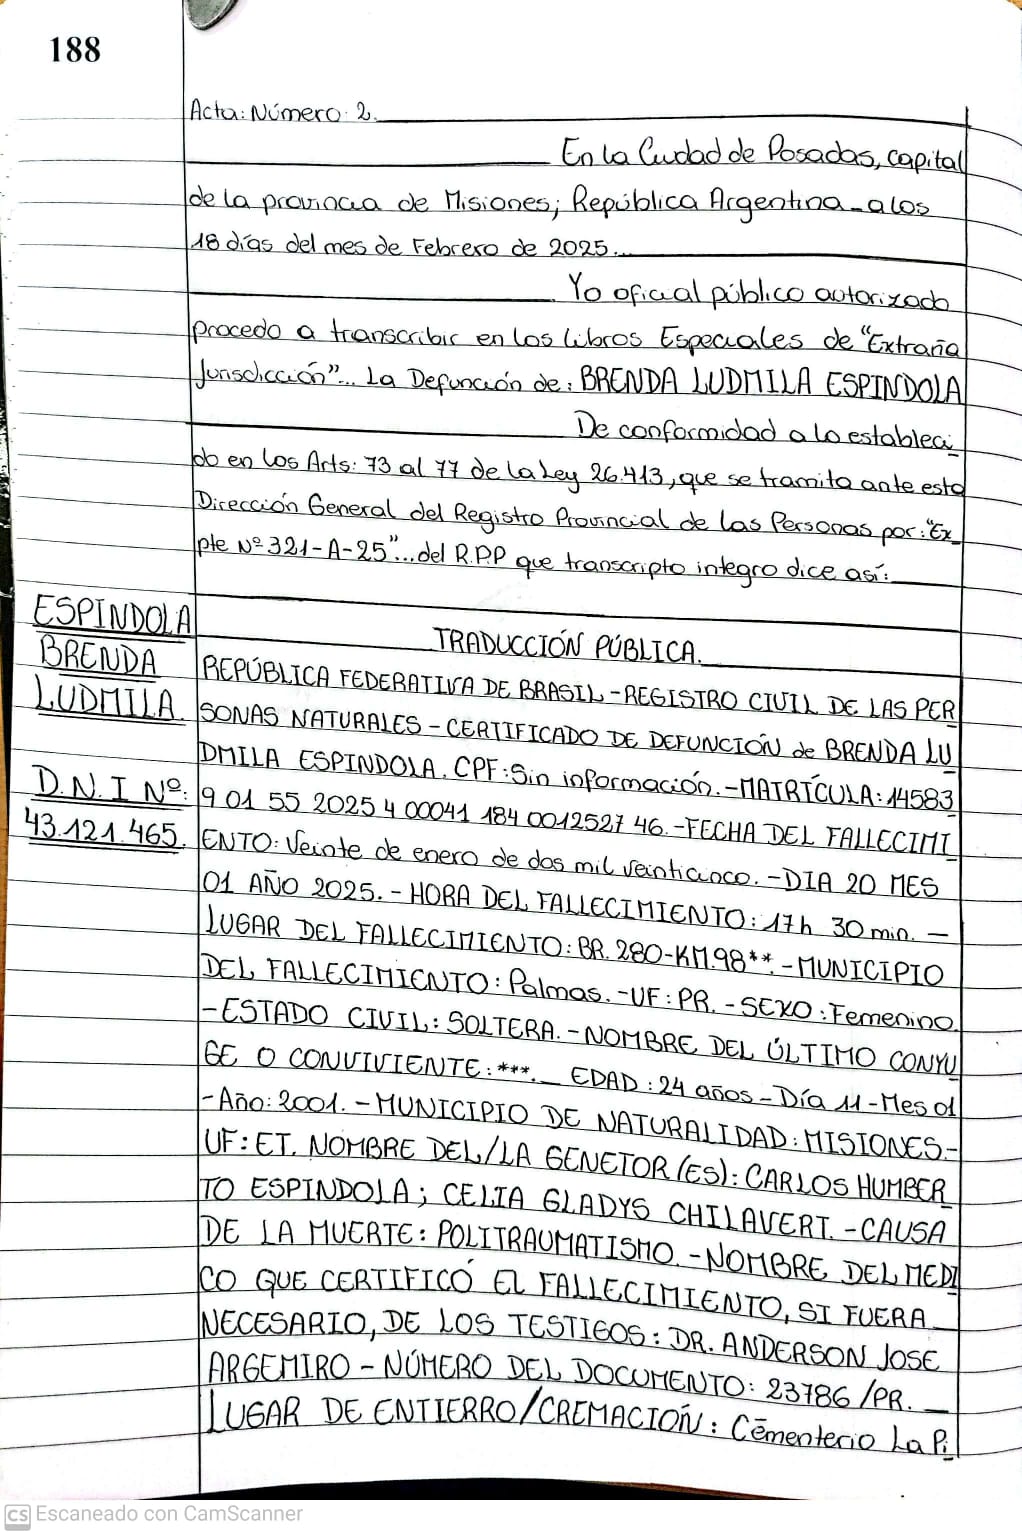 188
Acta: Número: 2.
En la Ciudad de Posadas, capital
de la provincia de Misiones; República Argentina - a los
18 días del mes de Febrero de 2025.
Yo oficial público autorizado
procedo a transcribir en los libros Especiales de "Extraña
Jurisdicción"... La Defunción de: BRENDA LUDMILA ESPINDOLA
De conformidad a lo estableci
do en los Arts: 73 al 77 de la Ley 26.413, que se tramita ante esta
Dirección General del Registro Provincial de las Personas por: "Ex_
pte Nº 321-A-25"... del R.P.P que transcripto integro dice así:
ESPINDOLA
BRENDA
LUDMILA.
D.N.I Nº:
43.121.465.
TRADUCCIÓN PÚBLICA.
REPÚBLICA FEDERATIVA DE BRASIL - REGISTRO CIVIL DE LAS PER
SONAS NATURALES - CERTIFICADO DE DEFUNCIÓN de BRENDA LU
DMILA ESPINDOLA. CPF: Sin información. - MATRÍCULA: 14583
9 01 55 2025 4 00041 184 0012527 46. - FECHA DEL FALLECIMI
ENTO: Veinte de enero de dos mil veinticinco. - DIA 20 MES
01 AÑO 2025. - HORA DEL FALLECIMIENTO: 17h 30 min. —
LUGAR DEL FALLECIMIENTO: BR. 280-KM.98**. - MUNICIPIO
DEL FALLECIMIENTO: Palmas. - UF: PR. - SEXO: Femenino.
- ESTADO CIVIL: SOLTERA. - NOMBRE DEL ÚLTIMO CONYU
GE O CONVIVIENTE: ***. _ EDAD: 24 años - Día 11 - Mes 01
- Año: 2001. - MUNICIPIO DE NATURALIDAD: MISIONES. -
UF: ET. NOMBRE DEL/LA GENETOR(ES): CARLOS HUMBER
TO ESPINDOLA; CELIA GLADYS CHILAVERT. - CAUSA
DE LA MUERTE: POLITRAUMATISMO. - NOMBRE DEL MEDI
CO QUE CERTIFICÓ EL FALLECIMIENTO, SI FUERA
NECESARIO, DE LOS TESTIGOS: DR. ANDERSON JOSE
ARGEMIRO - NÚMERO DEL DOCUMENTO: 23786/PR. —
LUGAR DE ENTIERRO/CREMACIOÑ: Cementerio La Pi
CS Escaneado con CamScanner